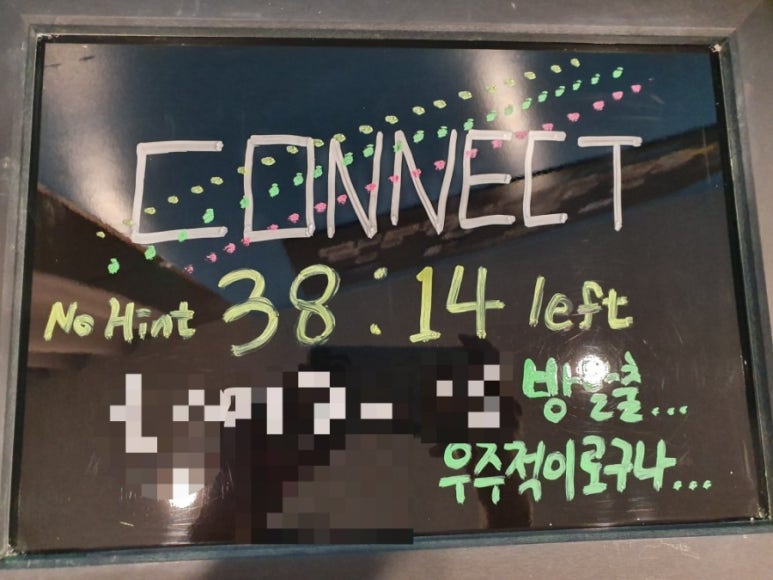 CONNECT
No Hint 38:14 left
방탈출...
우주적이로구나...